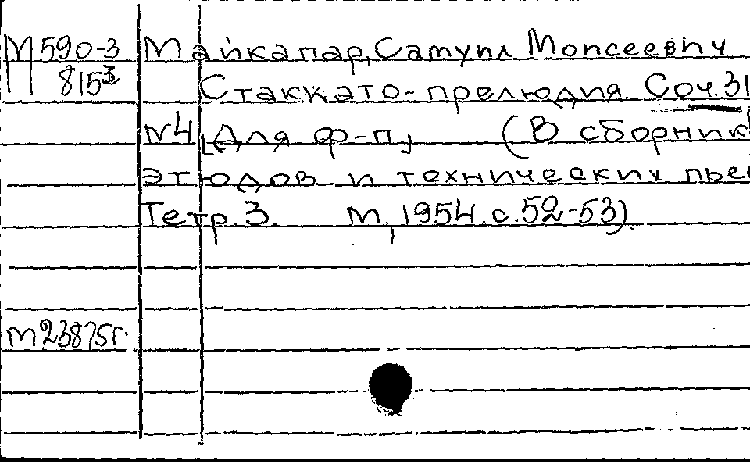 М590-3 Майкапар, Самуил Моисеевич
815³ Стаккато-прелюдия Соч.31
N4, Для ф-п, (В сборник
этюдов и технических пьес
Тетр.3. М, 1954. с.52-53).
М23875г